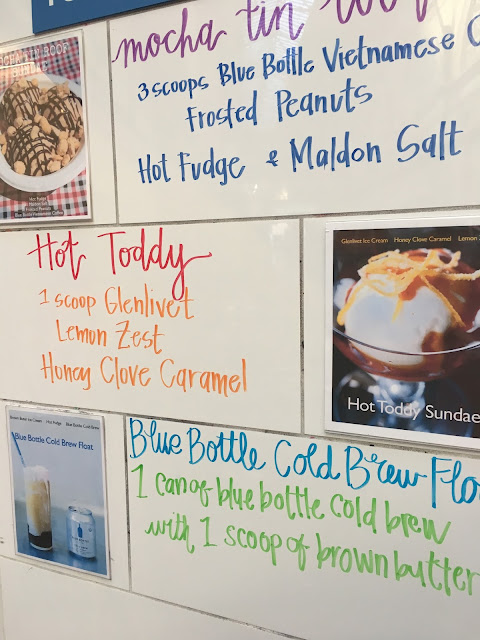 mocha tin
3 scoops Blue Bottle Vietnamese
Frosted Peanuts
Hot Fudge & Maldon Salt
Hot Fudge
Hot Toddy
1 scoop Glenlivet
Lemon Zest
Honey Clove Caramel
Glenlivet Ice Cream Honey Clove Caramel Lemon
Hot Toddy Sundae
Hot Fudge Blue Bottle Cold Brew
Blue Bottle Cold Brew Float
Blue Bottle Cold Brew Flo
1 can of blue bottle cold brew
with 1 scoop of brown butter